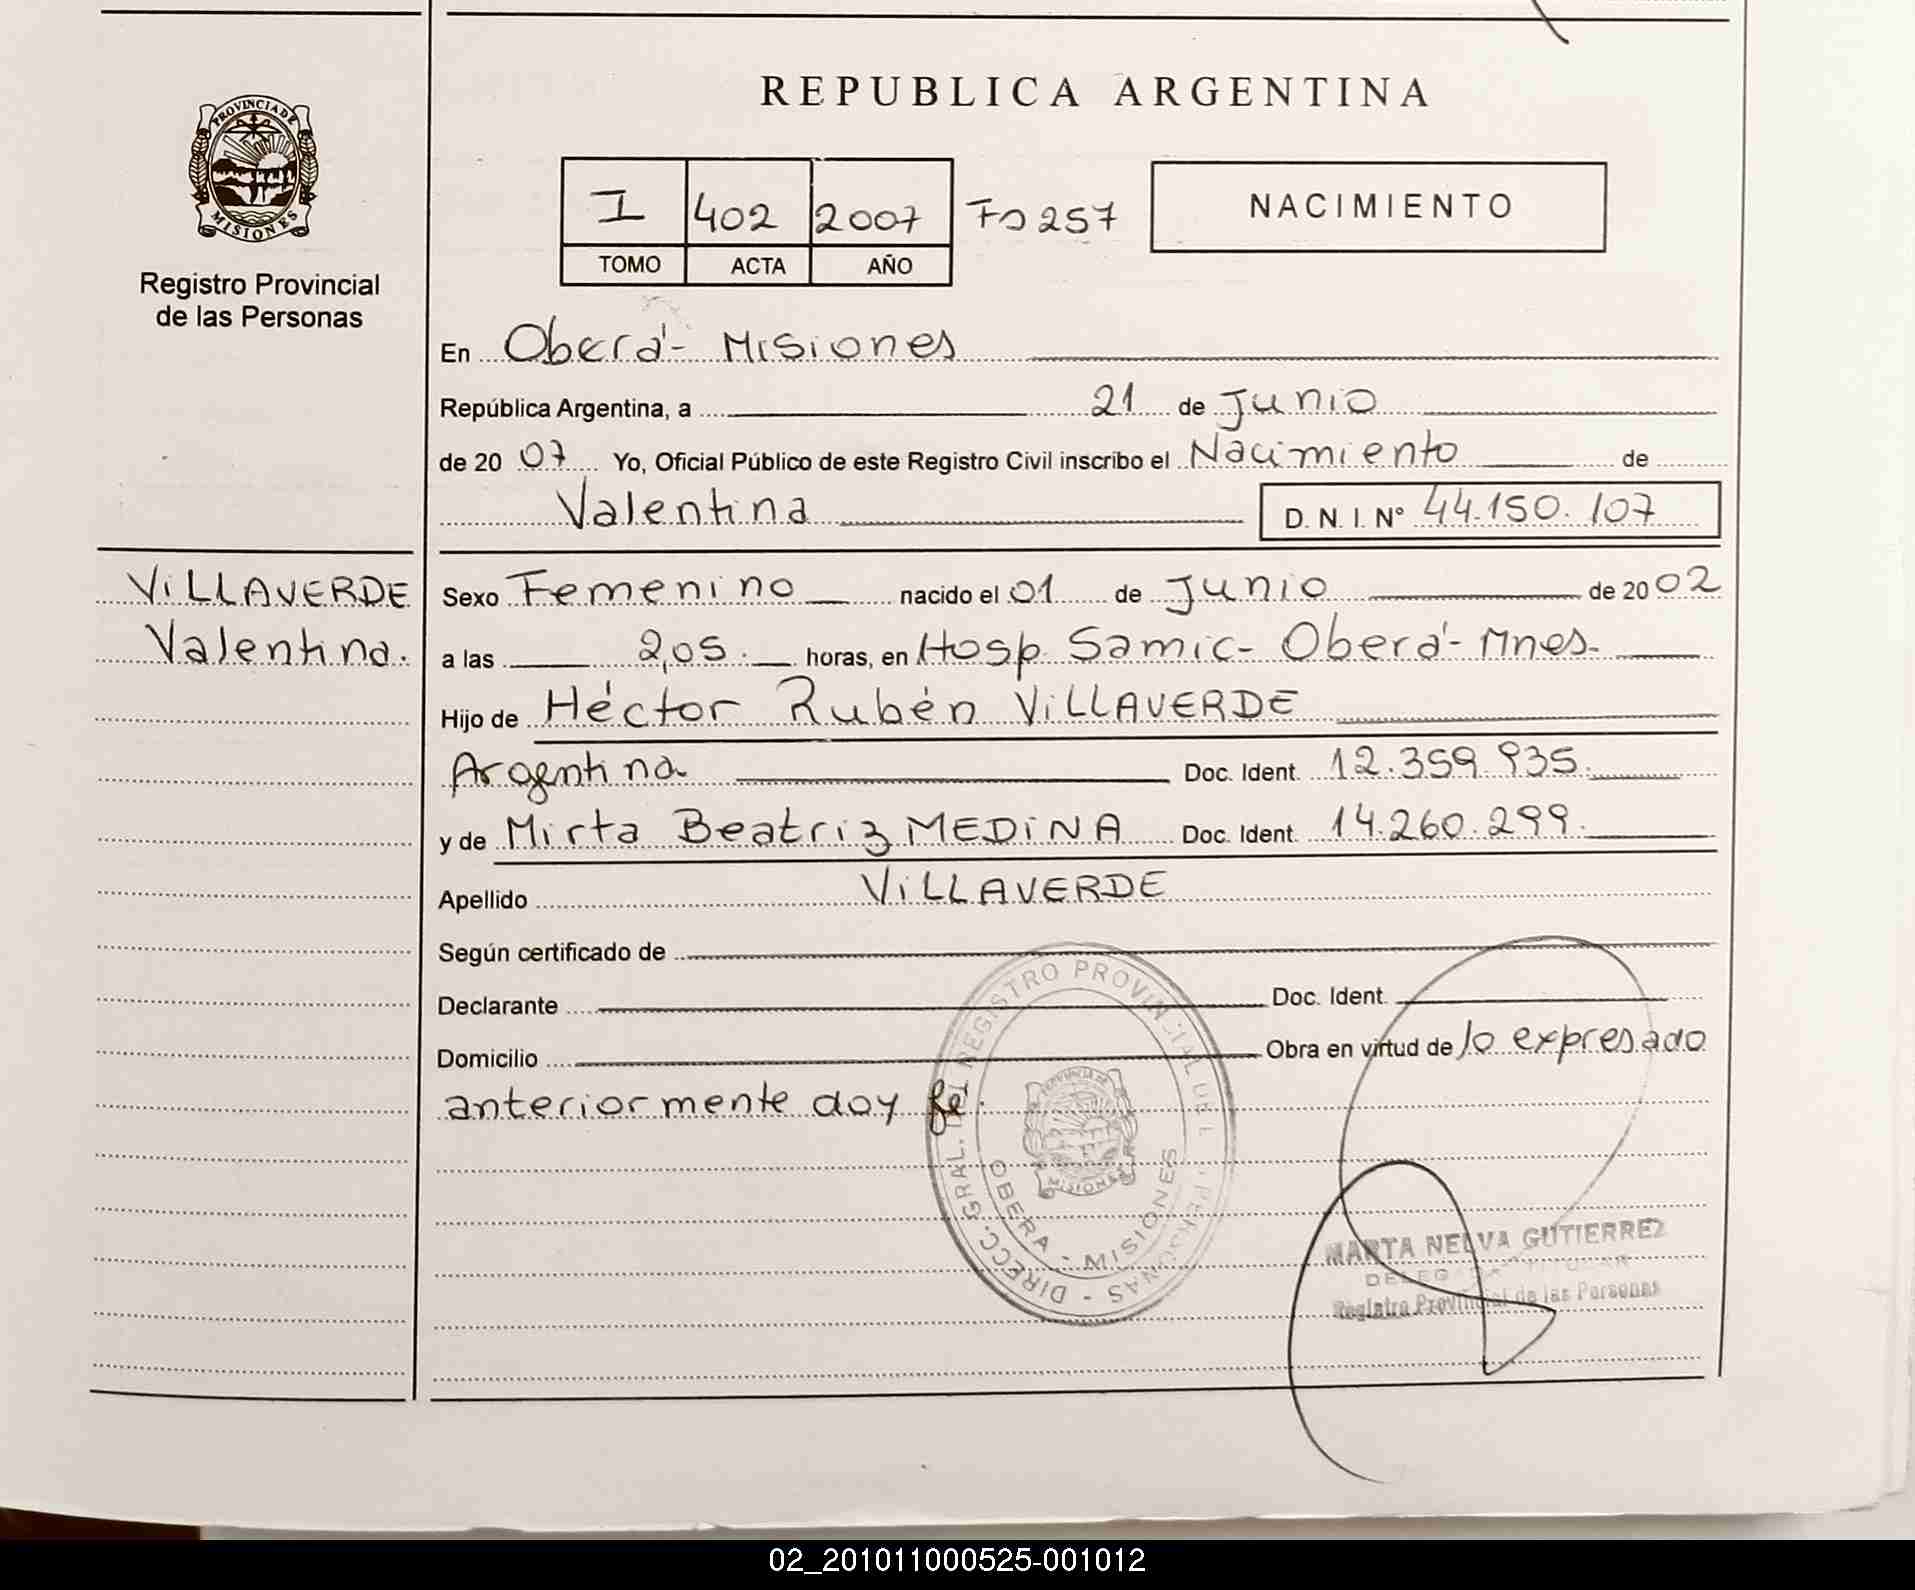 REPUBLICA ARGENTINA
PROVINCIA DE
MISIONES
Registro Provincial
de las Personas
I 402 2007 Fo 257
TOMO ACTA AÑO
NACIMIENTO
En Oberá - Misiones
República Argentina, a 21 de Junio
de 2007 Yo, Oficial Público de este Registro Civil inscribo el Nacimiento de
Valentina D. N. I. N° 44.150.107
VILLAVERDE
Valentina.
Sexo Femenino nacido el 01 de Junio de 2002
a las 2,05. horas, en Hosp Samic - Oberá - Mnes.
Hijo de Héctor Rubén VILLAVERDE
Argentina Doc. Ident. 12.359.935.
y de Mirta Beatriz MEDINA Doc. Ident. 14.260.299.
Apellido VILLAVERDE
Según certificado de
Declarante Doc. Ident.
Domicilio Obra en virtud de lo expresado
anteriormente doy fe.
DIRECC. GRAL. DEL REGISTRO PROVINCIAL DE L PERSONAS
PROVINCIA DE
MISIONES
OBERA - MISIONES
MARTA NELVA GUTIERREZ
DELEGADA TITULAR
Registro Provincial de las Personas
02_201011000525-001012